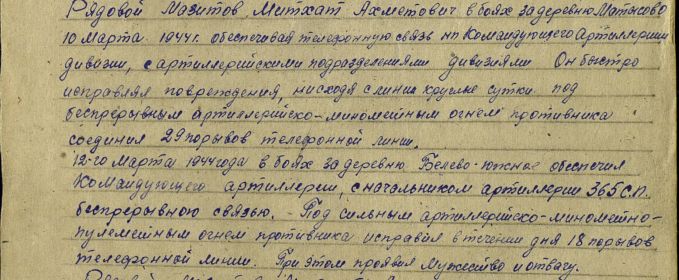 Рядовой Мазитов, Митхат Ахметович в боях за деревню Матысово
10 Марта 1944 г. обеспечивая телефонную связь НП Командующего Артиллерии
дивизии, с артиллерийскими подразделениями дивизиями Он быстро
исправлял повреждения, нисходя с линии круглые сутки под
беспрерывным артиллерийско-минометным огнем противника
соединил 29 порывов телефонной линии.
12-го марта 1944 года в боях за деревню Белево-южное обеспечил
Командующего артиллерии, с начальником артиллерии 365 С.П.
беспрерывною связью. - Под сильным артиллерийско-минометно-
пулеметным огнем противника исправил в течении дня 18 порывов
телефонной линии. При этом проявил мужество и отвагу.